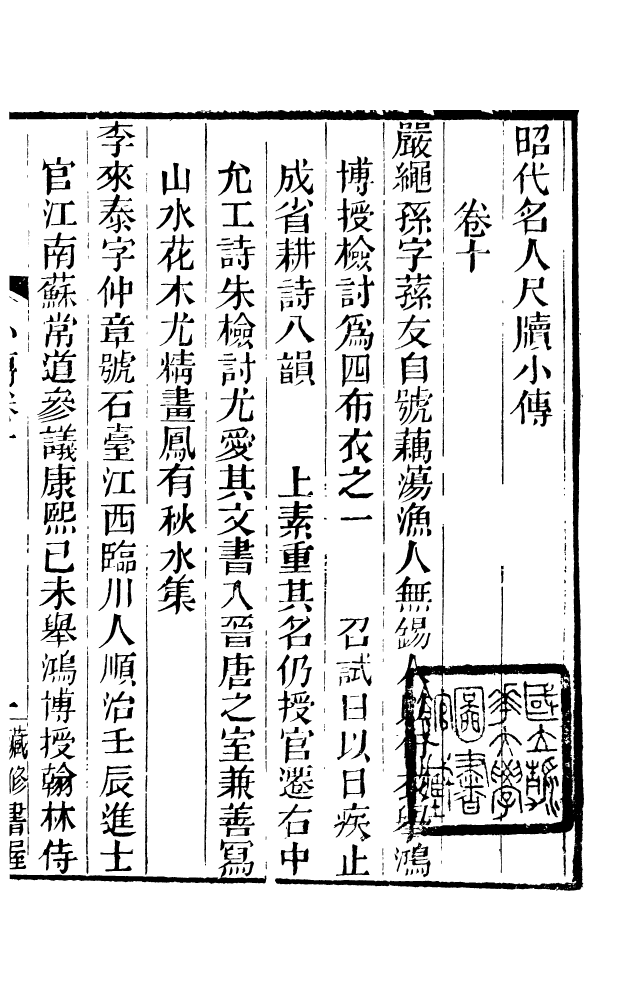 昭代名人尺牘小傳
卷十
嚴繩孫字蓀友自號藕蕩漁人無錫人舉鴻
博授檢討爲四布衣之一　召試日以目疾止
成省耕詩八韻　上素重其名仍授官遷右中
允工詩朱檢討尤愛其文書入晉唐之室兼善寫
山水花木尤精畫鳳有秋水集
李來泰字仲章號石臺江西臨川人順治壬辰進士
官江南蘇常道參議康熙己未舉鴻博授翰林侍
藏修書屋
國立
大學
圖書